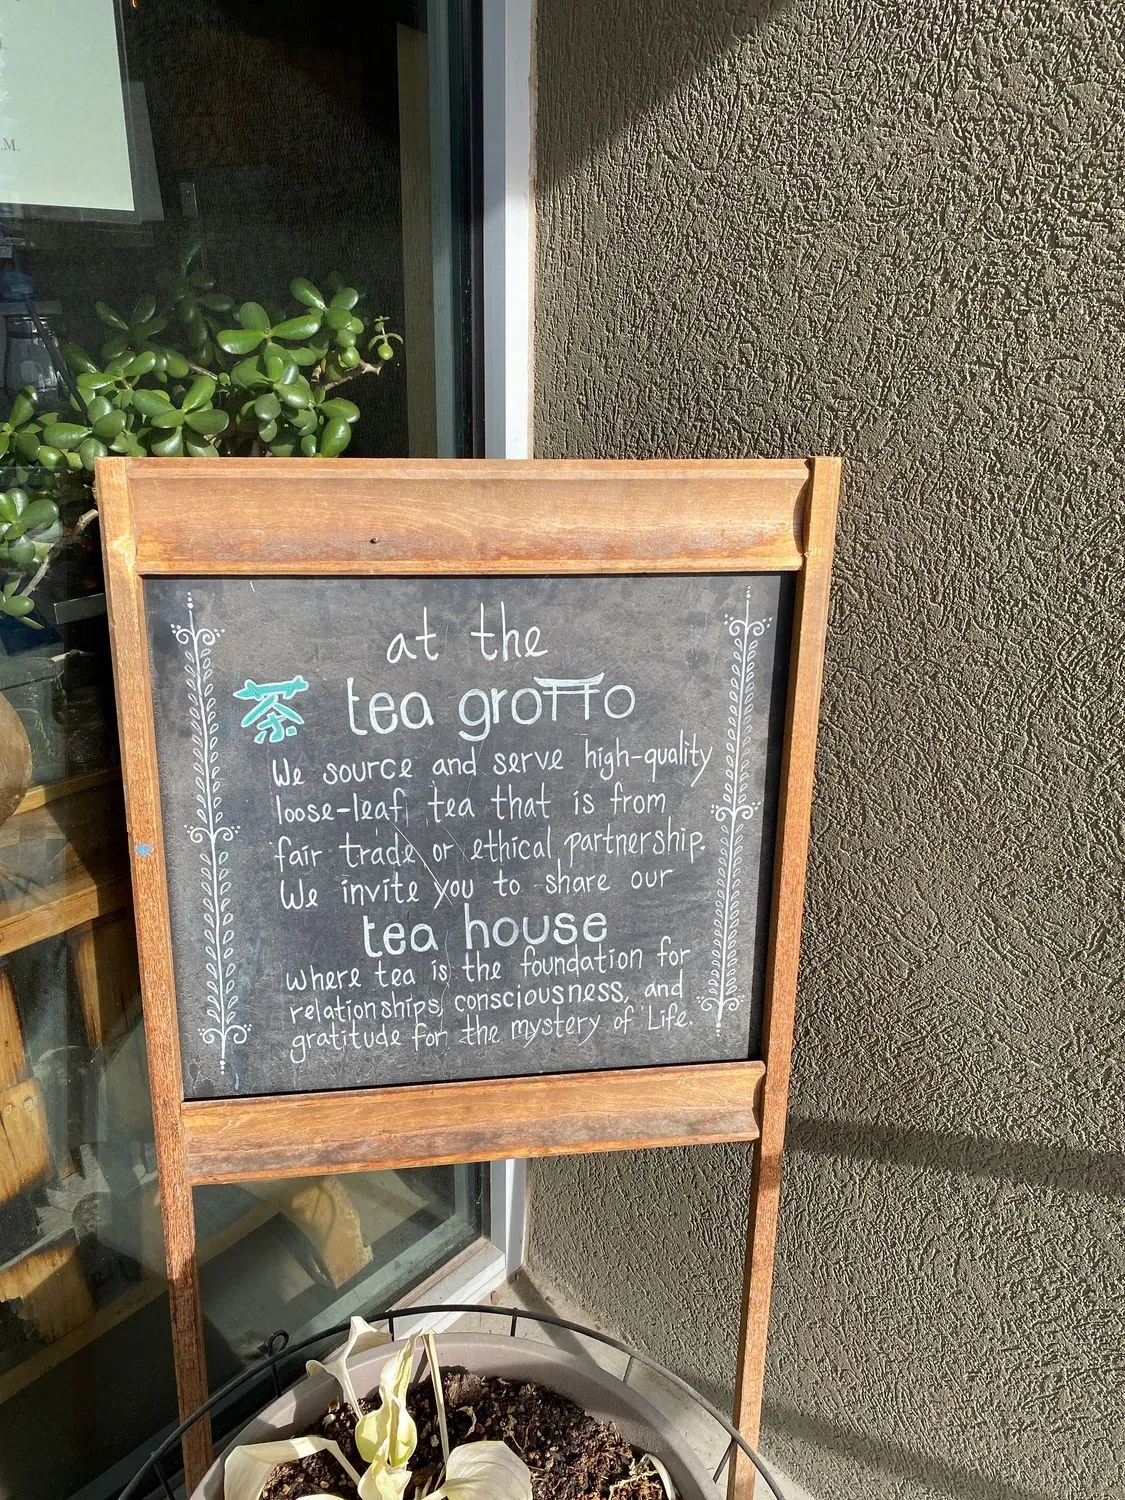 .M.
at the
茶 tea grotto
We source and serve high-quality
loose-leaf tea that is from
fair trade or ethical partnership.
We invite you to share our
tea house
where tea is the foundation for
relationships, consciousness, and
gratitude for the mystery of Life.